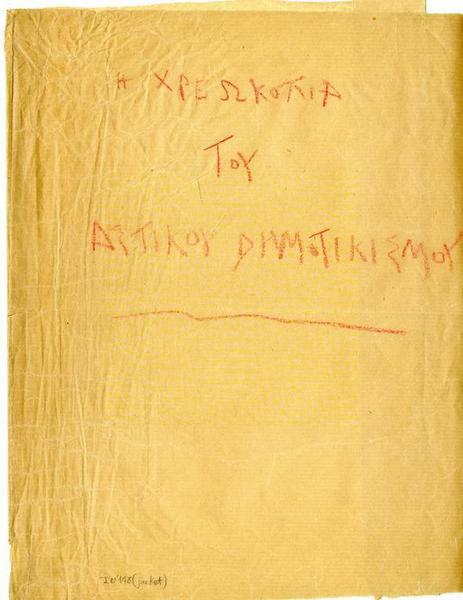 Η ΧΡΕΩΚΟΠΙΑ
ΤΟΥ
ΑΣΤΙΚΟΥ ΔΗΜΟΤΙΚΙΣΜΟΥ
(jacket)